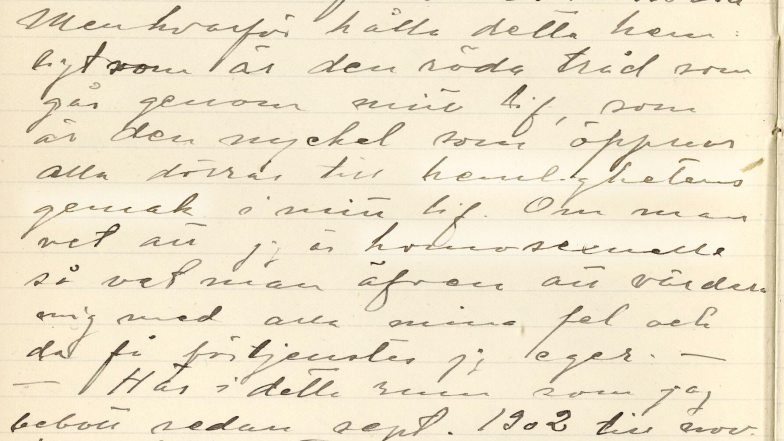 Men hvarför hålla detta hem-
ligt som är den röda tråd som
går genom mitt lif, som
är den nyckel som öppnar
alla dörrar till hemlighetens
gemak i mitt lif. Om man
vet att jg är homosexuelle
så vet man äfven att värdera
mig med alla mina fel och
de få förtjenster jg eger. —
— Här i detta rum som jag
bebott sedan sept. 1902 till nov.